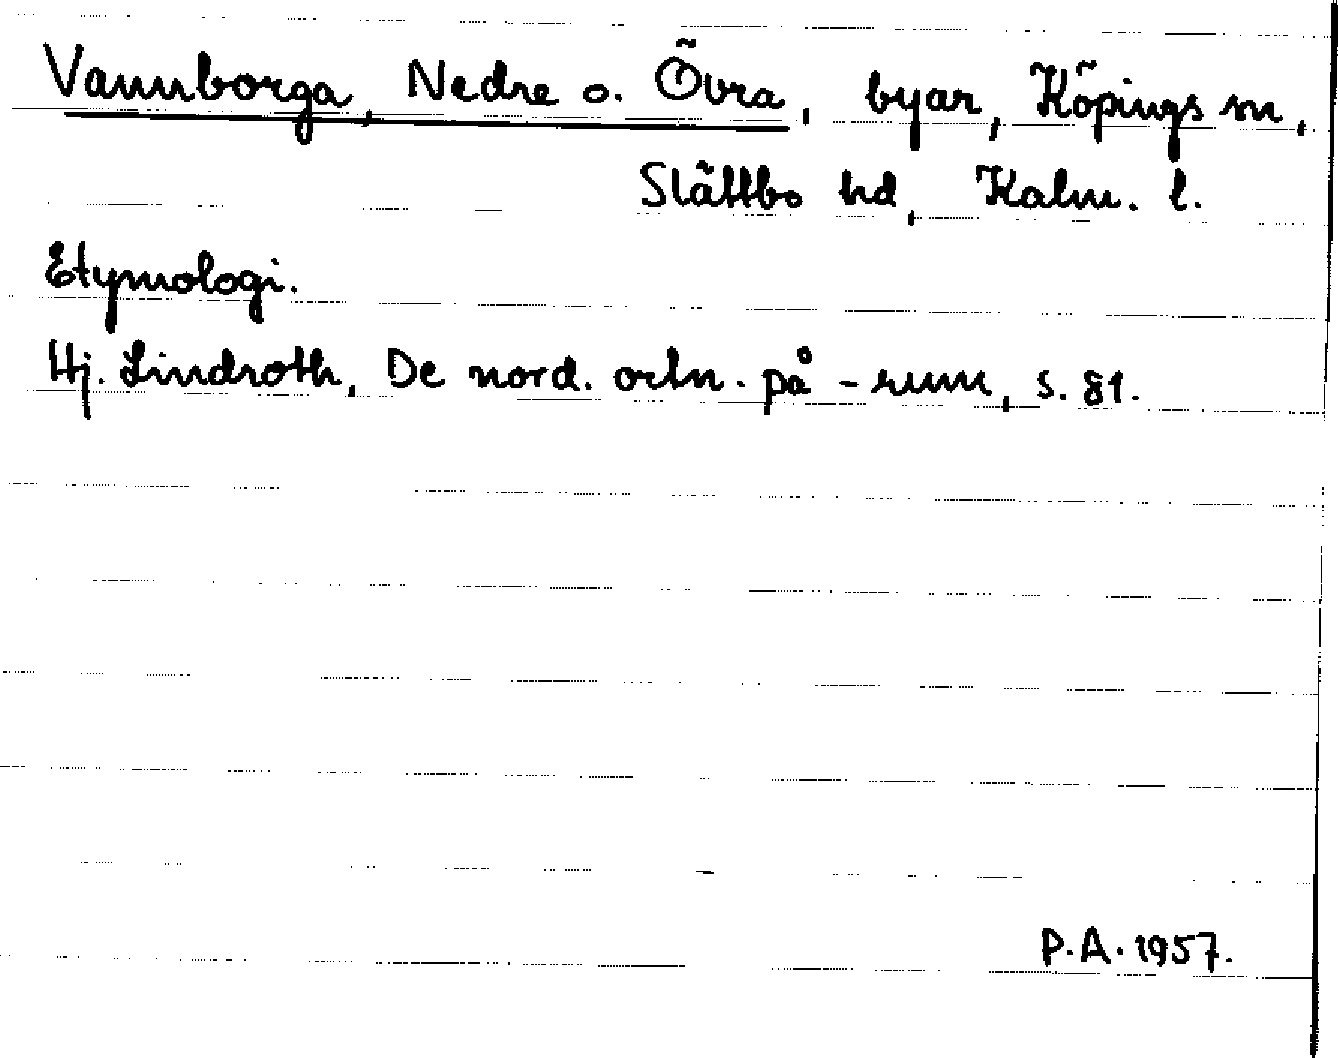 Vannborga, Nedre o. Övra, byar, Köpings sn,
Slättbo hd, Kalm. l.
Etymologi.
Hj. Lindroth, De nord. ortn. på -rum, s. 81.
P.A. 1957.